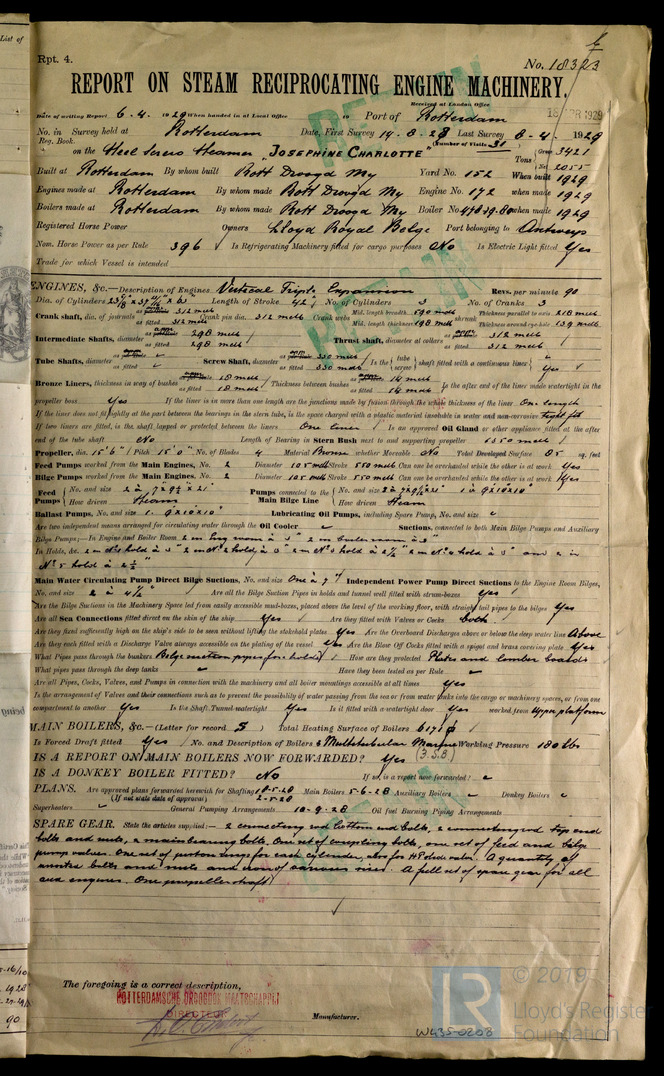 List of
Rpt. 4.
No. 18323
REPORT ON STEAM RECIPROCATING ENGINE MACHINERY.
Received at London Office
18 APR 1929
Date of writing Report 6-4- 1929 When handed in at Local Office Port of Rotterdam
No. in Survey held at Rotterdam Date, First Survey 14-8-28 Last Survey 8-4- 1929
Reg. Book. (Number of Visits 31)
on the Steel Screw Steamer "JOSEPHINE CHARLOTTE" Tons Gross 3421
Net 2055
Built at Rotterdam By whom built Rott Droogd My Yard No. 152 When built 1929
Engines made at Rotterdam By whom made Rott Droogd My Engine No. 172 when made 1929
Boilers made at Rotterdam By whom made Rott Droogd My Boiler No. when made 1929
Registered Horse Power Owners Lloyd Royal Belge Port belonging to Antwerp
Nom. Horse Power as per Rule 396 Is Refrigerating Machinery fitted for cargo purposes No Is Electric Light fitted Yes
Trade for which Vessel is intended
ENGINES, &c.—Description of Engines Vertical Triple Expansion Revs. per minute 90
Dia. of Cylinders Length of Stroke 42" No. of Cylinders 3 No. of Cranks 3
Crank shaft, dia. of journals as fitted 312 Crank pin dia. 312 Crank webs Mid. length breadth 590 Thickness parallel to axis 218
Mid. length thickness 198 shrunk Thickness around eye-hole 139
Intermediate Shafts, diameter as fitted 298 Thrust shaft, diameter at collars as fitted 312
Tube Shafts, diameter as fitted Screw Shaft, diameter as fitted 330 Is the tube screw shaft fitted with a continuous liner Yes
Bronze Liners, thickness in way of bushes as fitted 18 Thickness between bushes as fitted 14 Is the after end of the liner made watertight in the
propeller boss Yes If the liner is in more than one length are the junctions made by fusion through the whole thickness of the liner One length
If the liner does not fit tightly at the part between the bearings in the stern tube, is the space charged with a plastic material insoluble in water and non-corrosive Tight fit
If two liners are fitted, is the shaft lapped or protected between the liners One liner Is an approved Oil Gland or other appliance fitted at the after
end of the tube shaft No Length of Bearing in Stern Bush next to and supporting propeller 1350
Propeller, dia. 15'6" Pitch 15'0" No. of Blades 4 Material Bronze whether Moveable No Total Developed Surface 85 sq. feet
Feed Pumps worked from the Main Engines, No. 2 Diameter 105 Stroke 550 Can one be overhauled while the other is at work Yes
Bilge Pumps worked from the Main Engines, No. 2 Diameter 105 Stroke 550 Can one be overhauled while the other is at work Yes
Feed Pumps No. and size 2 à 7" x 9½" x 21" Pumps connected to the Main Bilge Line No. and size
How driven Steam How driven Steam
Ballast Pumps, No. and size 1 - 9"x10"x10" Lubricating Oil Pumps, including Spare Pump, No. and size
Are two independent means arranged for circulating water through the Oil Cooler Suctions, connected to both Main Bilge Pumps and Auxiliary
Bilge Pumps;—In Engine and Boiler Room 2 in Eng room à 3" 2 in boiler room à 3"
In Holds, &c. 2 in No 1 hold à 3" 2 in No 2 hold à 3" 2 in No 3 hold à 2½" 2 in No 4 hold à 3" and 2 in
No 5 hold à 2½"
Main Water Circulating Pump Direct Bilge Suctions, No. and size One à 7" Independent Power Pump Direct Suctions to the Engine Room Bilges,
No. and size 2 à 4½" Are all the Bilge Suction Pipes in holds and tunnel well fitted with strum-boxes Yes
Are the Bilge Suctions in the Machinery Space led from easily accessible mud-boxes, placed above the level of the working floor, with straight tail pipes to the bilges Yes
Are all Sea Connections fitted direct on the skin of the ship Yes Are they fitted with Valves or Cocks both
Are they fixed sufficiently high on the ship's side to be seen without lifting the stokehold plates Yes Are the Overboard Discharges above or below the deep water line Above
Are they each fitted with a Discharge Valve always accessible on the plating of the vessel Yes Are the Blow Off Cocks fitted with a spigot and brass covering plate Yes
What Pipes pass through the bunkers Bilge suction pipes for holds How are they protected Plates and limber boards
What pipes pass through the deep tanks Have they been tested as per Rule
Are all Pipes, Cocks, Valves, and Pumps in connection with the machinery and all boiler mountings accessible at all times Yes
Is the arrangement of Valves and their connections such as to prevent the possibility of water passing from the sea or from water tanks into the cargo or machinery spaces, or from one
compartment to another Yes Is the Shaft Tunnel watertight Yes Is it fitted with a watertight door Yes worked from Upper platform
MAIN BOILERS, &c.—(Letter for record S) Total Heating Surface of Boilers
Is Forced Draft fitted Yes No. and Description of Boilers 3 Multitubular Marine Working Pressure 180 lbs
IS A REPORT ON MAIN BOILERS NOW FORWARDED? Yes (3 S.B.)
IS A DONKEY BOILER FITTED? No If so, is a report now forwarded?
PLANS. Are approved plans forwarded herewith for Shafting Main Boilers 5-6-28 Auxiliary Boilers Donkey Boilers
(If not state date of approval) 2-5-28
Superheaters General Pumping Arrangements 10-9-28 Oil fuel Burning Piping Arrangements
SPARE GEAR. State the articles supplied:— 2 connecting rod bottom end bolts, 2 connecting rod top end
bolts and nuts, 2 main bearing bolts, One set of coupling bolts, one set of feed and bilge
pump valves. One set of piston rings for each cylinder, also for HP slide valve. A quantity of
assorted bolts and nuts and iron of various sizes. A full set of spare gear for all
aux engines. One propeller shaft.
The foregoing is a correct description,
ROTTERDAMSCHE DROOGDOK MAATSCHAPPIJ
DIRECTEUR
Manufacturer.
W435-0208
© 2019
Lloyd's Register
Foundation
LR